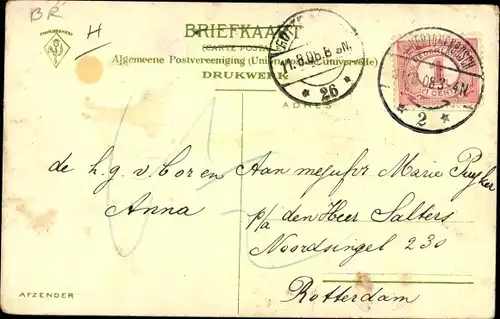 BR
H
BRIEFKAART
(CARTE POSTALE)
Algemeene Postvereeniging (Union postale universelle)
DRUKWERK
ADRES
11.8.08.8
26
08.3-4N
2
1
CENT
de h.g. v. Cor en
Anna
Aan mejufvr Marie Puyker
p/a den Heer Salters
Noordsingel 230
Rotterdam
AFZENDER